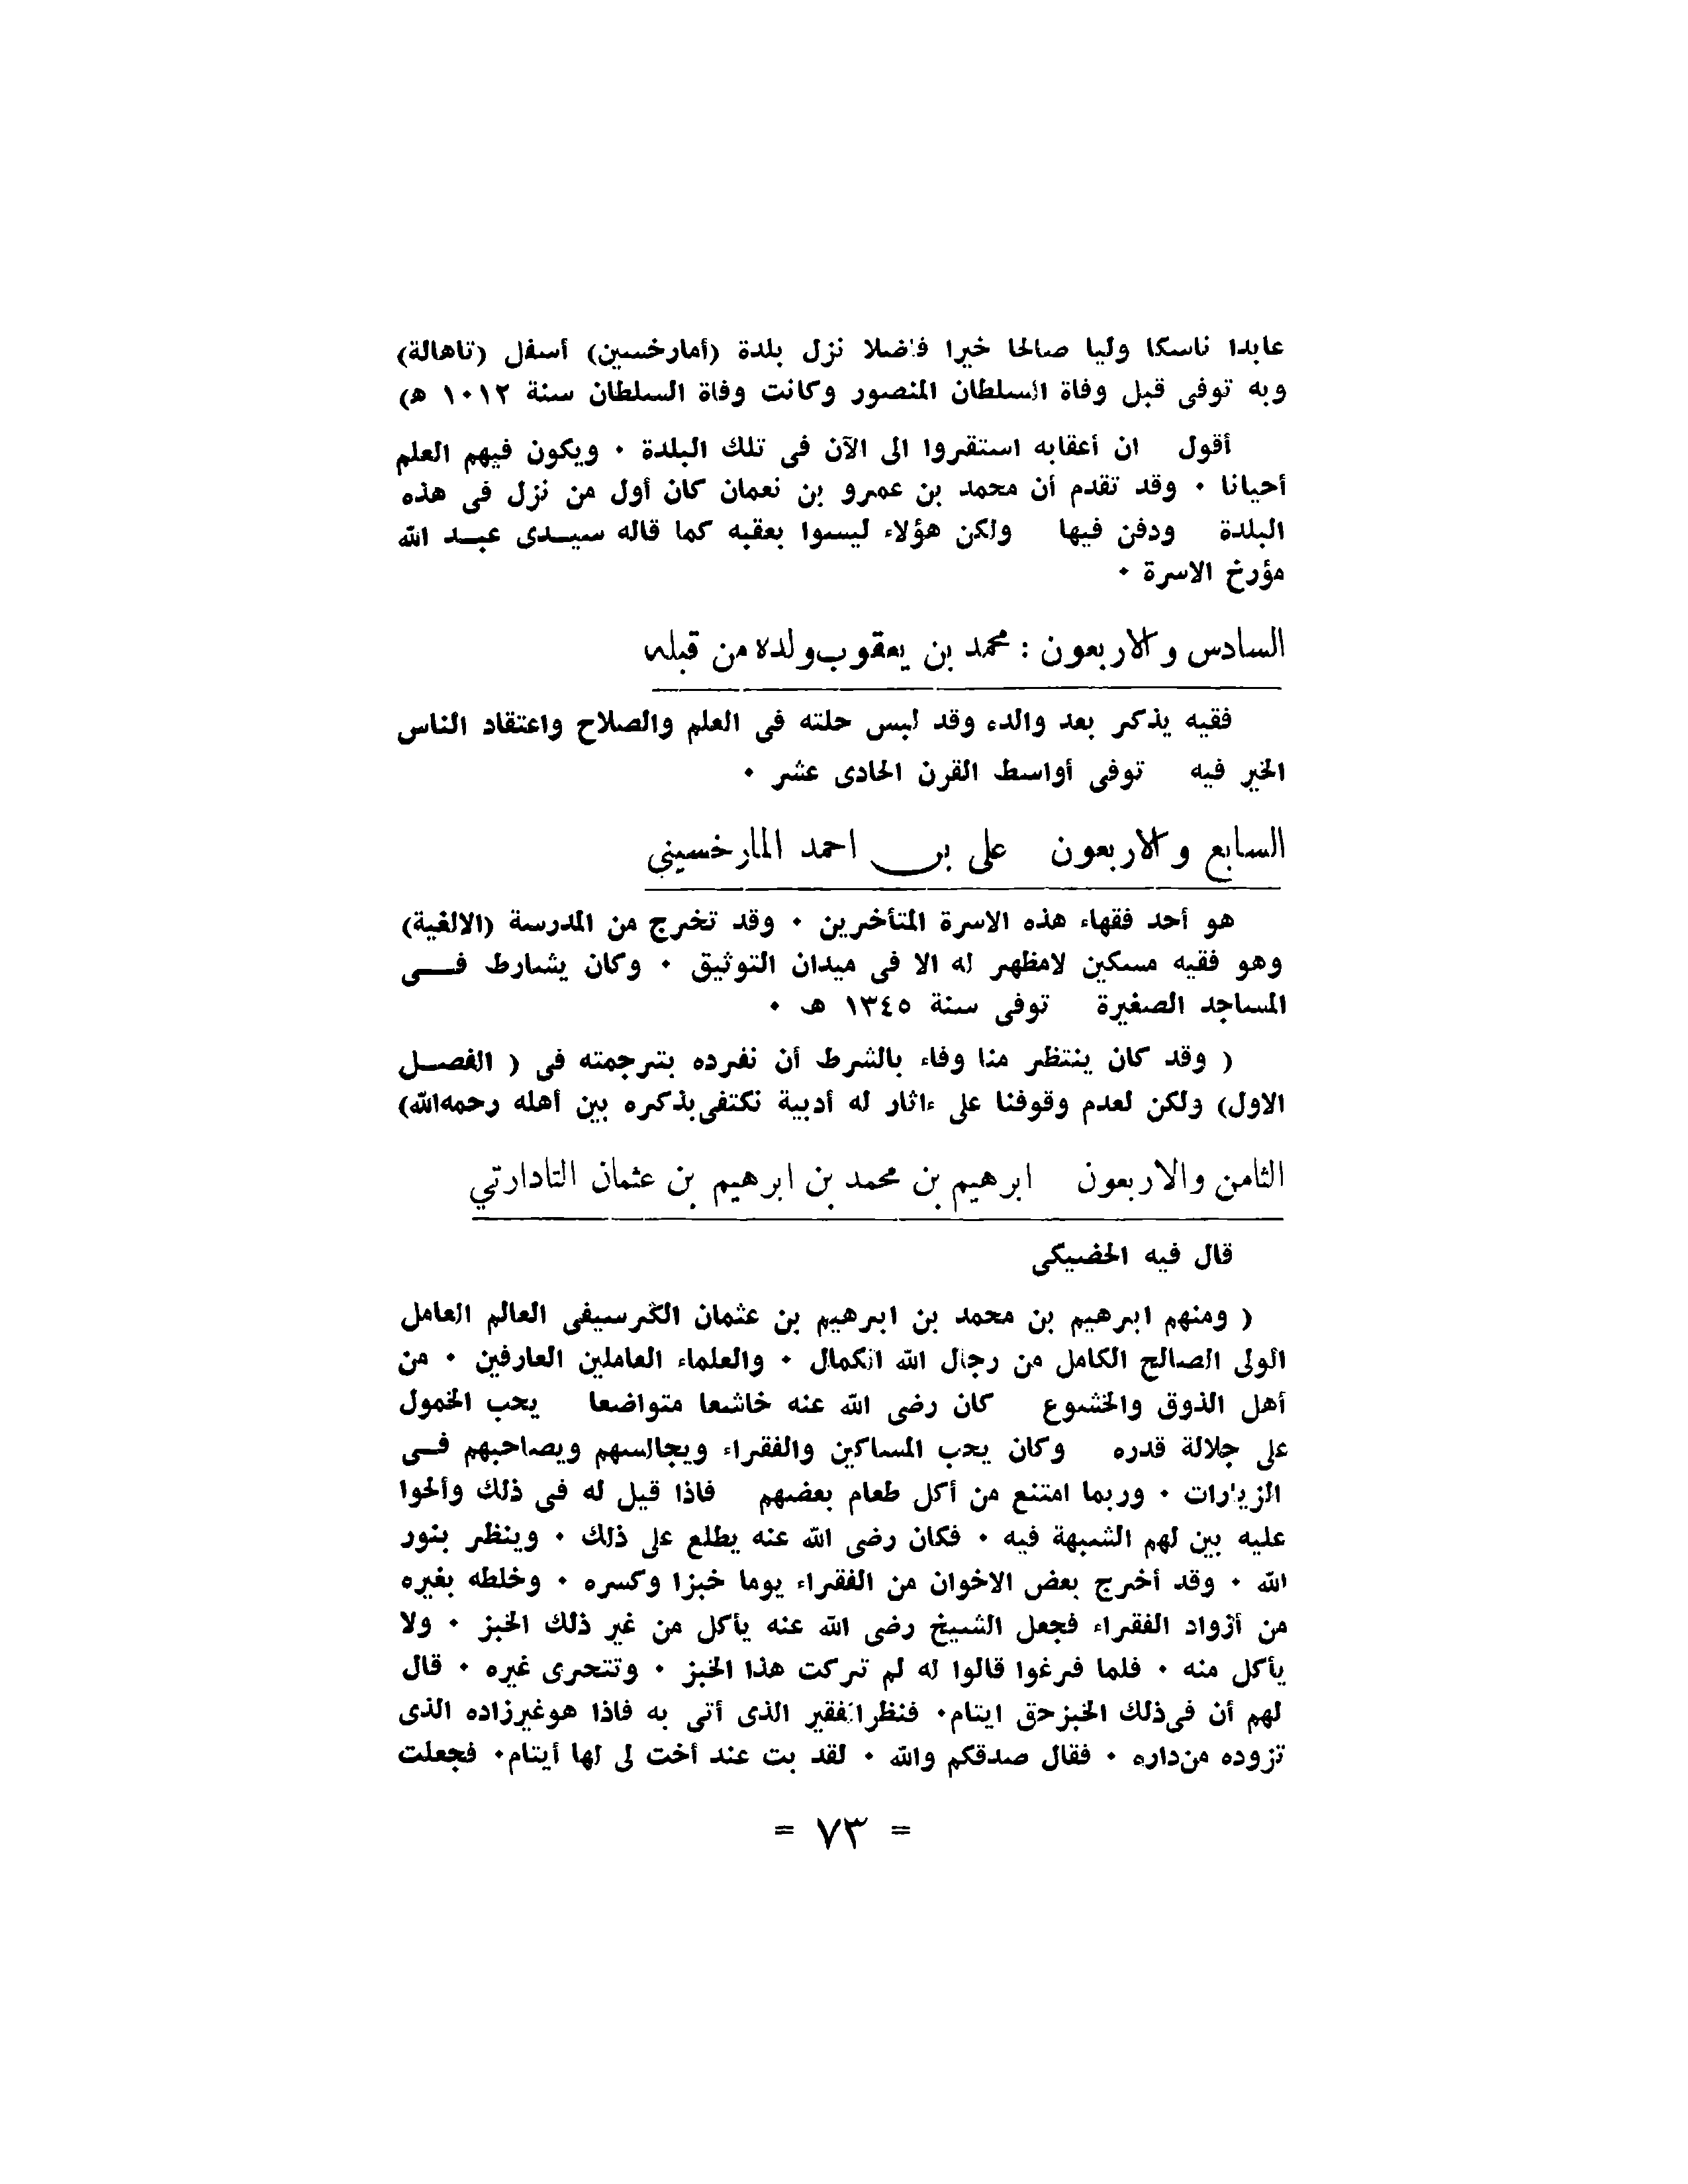 عابدا ناسكا وليا صالحا خيرا فاضلا نزل بلدة (أمارخسين) أسفل (تاهالة)
وبه توفى قبل وفاة السلطان المنصور وكانت وفاة السلطان سنة ١٠١٢ ه)
أقول ان أعقابه استقروا الى الآن فى تلك البلدة ٠ ويكون فيهم العلم
أحيانا ٠ وقد تقدم أن محمد بن عمرو بن نعمان كان أول من نزل فى هذه
البلدة ودفن فيها ولكن هؤلاء ليسوا بعقبه كما قاله سيـدى عبـد الله
مؤرخ الاسرة ٠
السادس والاربعون : محمد بن يعقوب ولده من قبله
فقيه يذكر بعد والده وقد لبس حلته فى العلم والصلاح واعتقاد الناس
الخير فيه توفى أواسط القرن الحادى عشر ٠
السابع والاربعون على بن احمد المارخسيني
هو أحد فقهاء هذه الاسرة المتأخرين ٠ وقد تخرج من المدرسة (الالغية)
وهو فقيه مسكين لامظهر له الا فى ميدان التوثيق ٠ وكان يشارط فــى
المساجد الصغيرة توفى سنة ١٣٤٥ هـ ٠
( وقد كان ينتظر منا وفاء بالشرط أن نفرده بترجمته فى ( الفصـل
الاول) ولكن لعدم وقوفنا على ءاثار له أدبية نكتفى بذكره بين أهله رحمه الله)
الثامن والاربعون ابرهيم بن محمد بن ابرهيم بن عثمان التادارتي
قال فيه الحضيكى
( ومنهم ابرهيم بن محمد بن ابرهيم بن عثمان الكرسيفى العالم العامل
الولى الصالح الكامل من رجال الله الكمال ٠ والعلماء العاملين العارفين ٠ من
أهل الذوق والخشوع كان رضى الله عنه خاشعا متواضعا يحب الخمول
على جلالة قدره وكان يحب المساكين والفقراء ويجالسهم ويصاحبهم فـى
الزيارات ٠ وربما امتنع من أكل طعام بعضهم فاذا قيل له فى ذلك وألحوا
عليه بين لهم الشبهة فيه ٠ فكان رضى الله عنه يطلع على ذلك ٠ وينظر بنور
الله ٠ وقد أخرج بعض الاخوان من الفقراء يوما خبزا وكسره ٠ وخلطه بغيره
من أزواد الفقراء فجعل الشيخ رضى الله عنه يأكل من غير ذلك الخبز ٠ ولا
يأكل منه ٠ فلما فرغوا قالوا له لم تركت هذا الخبز ٠ وتتحرى غيره ٠ قال
لهم أن فى ذلك الخبز حق ايتام ٠ فنظر الفقير الذى أتى به فاذا هو غير زاده الذى
تزوده من داره ٠ فقال صدقكم والله ٠ لقد بت عند أخت لى لها أيتام ٠ فجعلت
= ٧٣ =